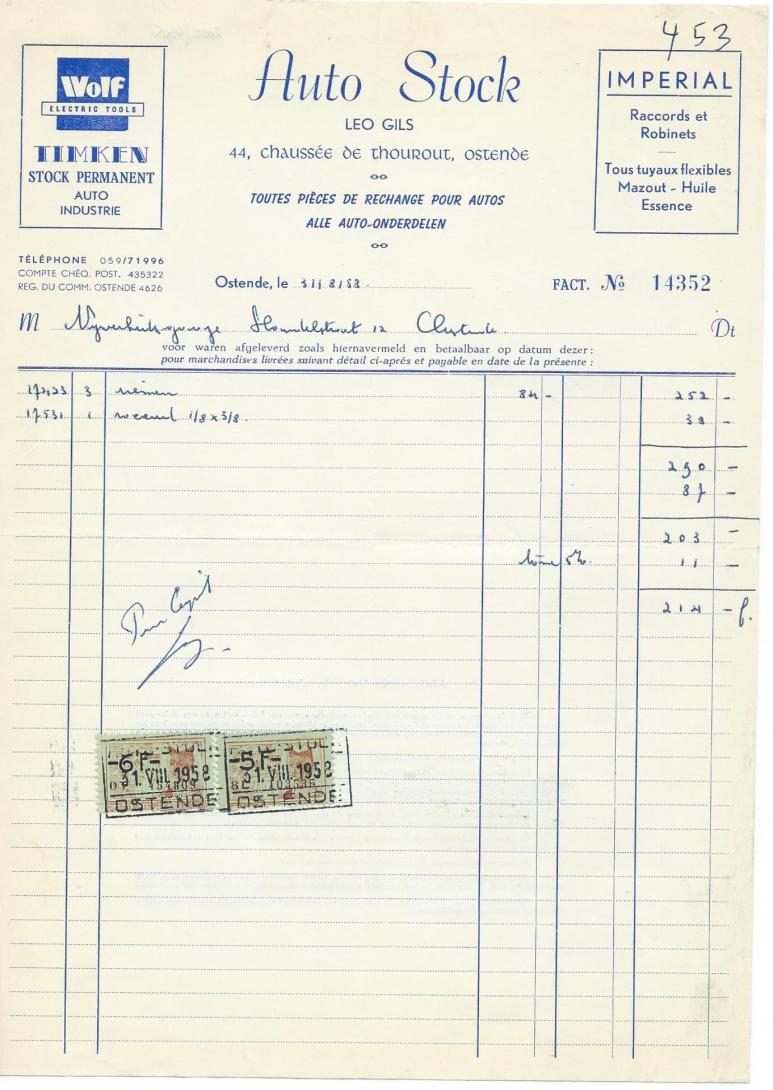 453
Wolf
ELECTRIC TOOLS
TIMKEN
STOCK PERMANENT
AUTO
INDUSTRIE
Auto Stock
LEO GILS
44, chaussée de thourout, ostende
TOUTES PIÈCES DE RECHANGE POUR AUTOS
ALLE AUTO-ONDERDELEN
IMPERIAL
Raccords et
Robinets
Tous tuyaux flexibles
Mazout - Huile
Essence
TÉLÉPHONE 059/71996
COMPTE CHÉQ. POST. 435322
REG. DU COMM. OSTENDE 4626
Ostende, le 31/8/58.
FACT. No 14352
M Nyverheidsgarage 12 Dt
voor waren afgeleverd zoals hiernavermeld en betaalbaar op datum dezer:
pour marchandises livrées suivant détail ci-après et payable en date de la présente:
3 riemen 84 - 252 -
17531 1 raccord 1/8 x 3/8. 38 -
290 -
87 -
203 -
5%. 11 -
214 - f.
Pour Acquit
-6F- -5F-
31. VIII. 1958 31. VIII. 1958
OSTENDE OSTENDE